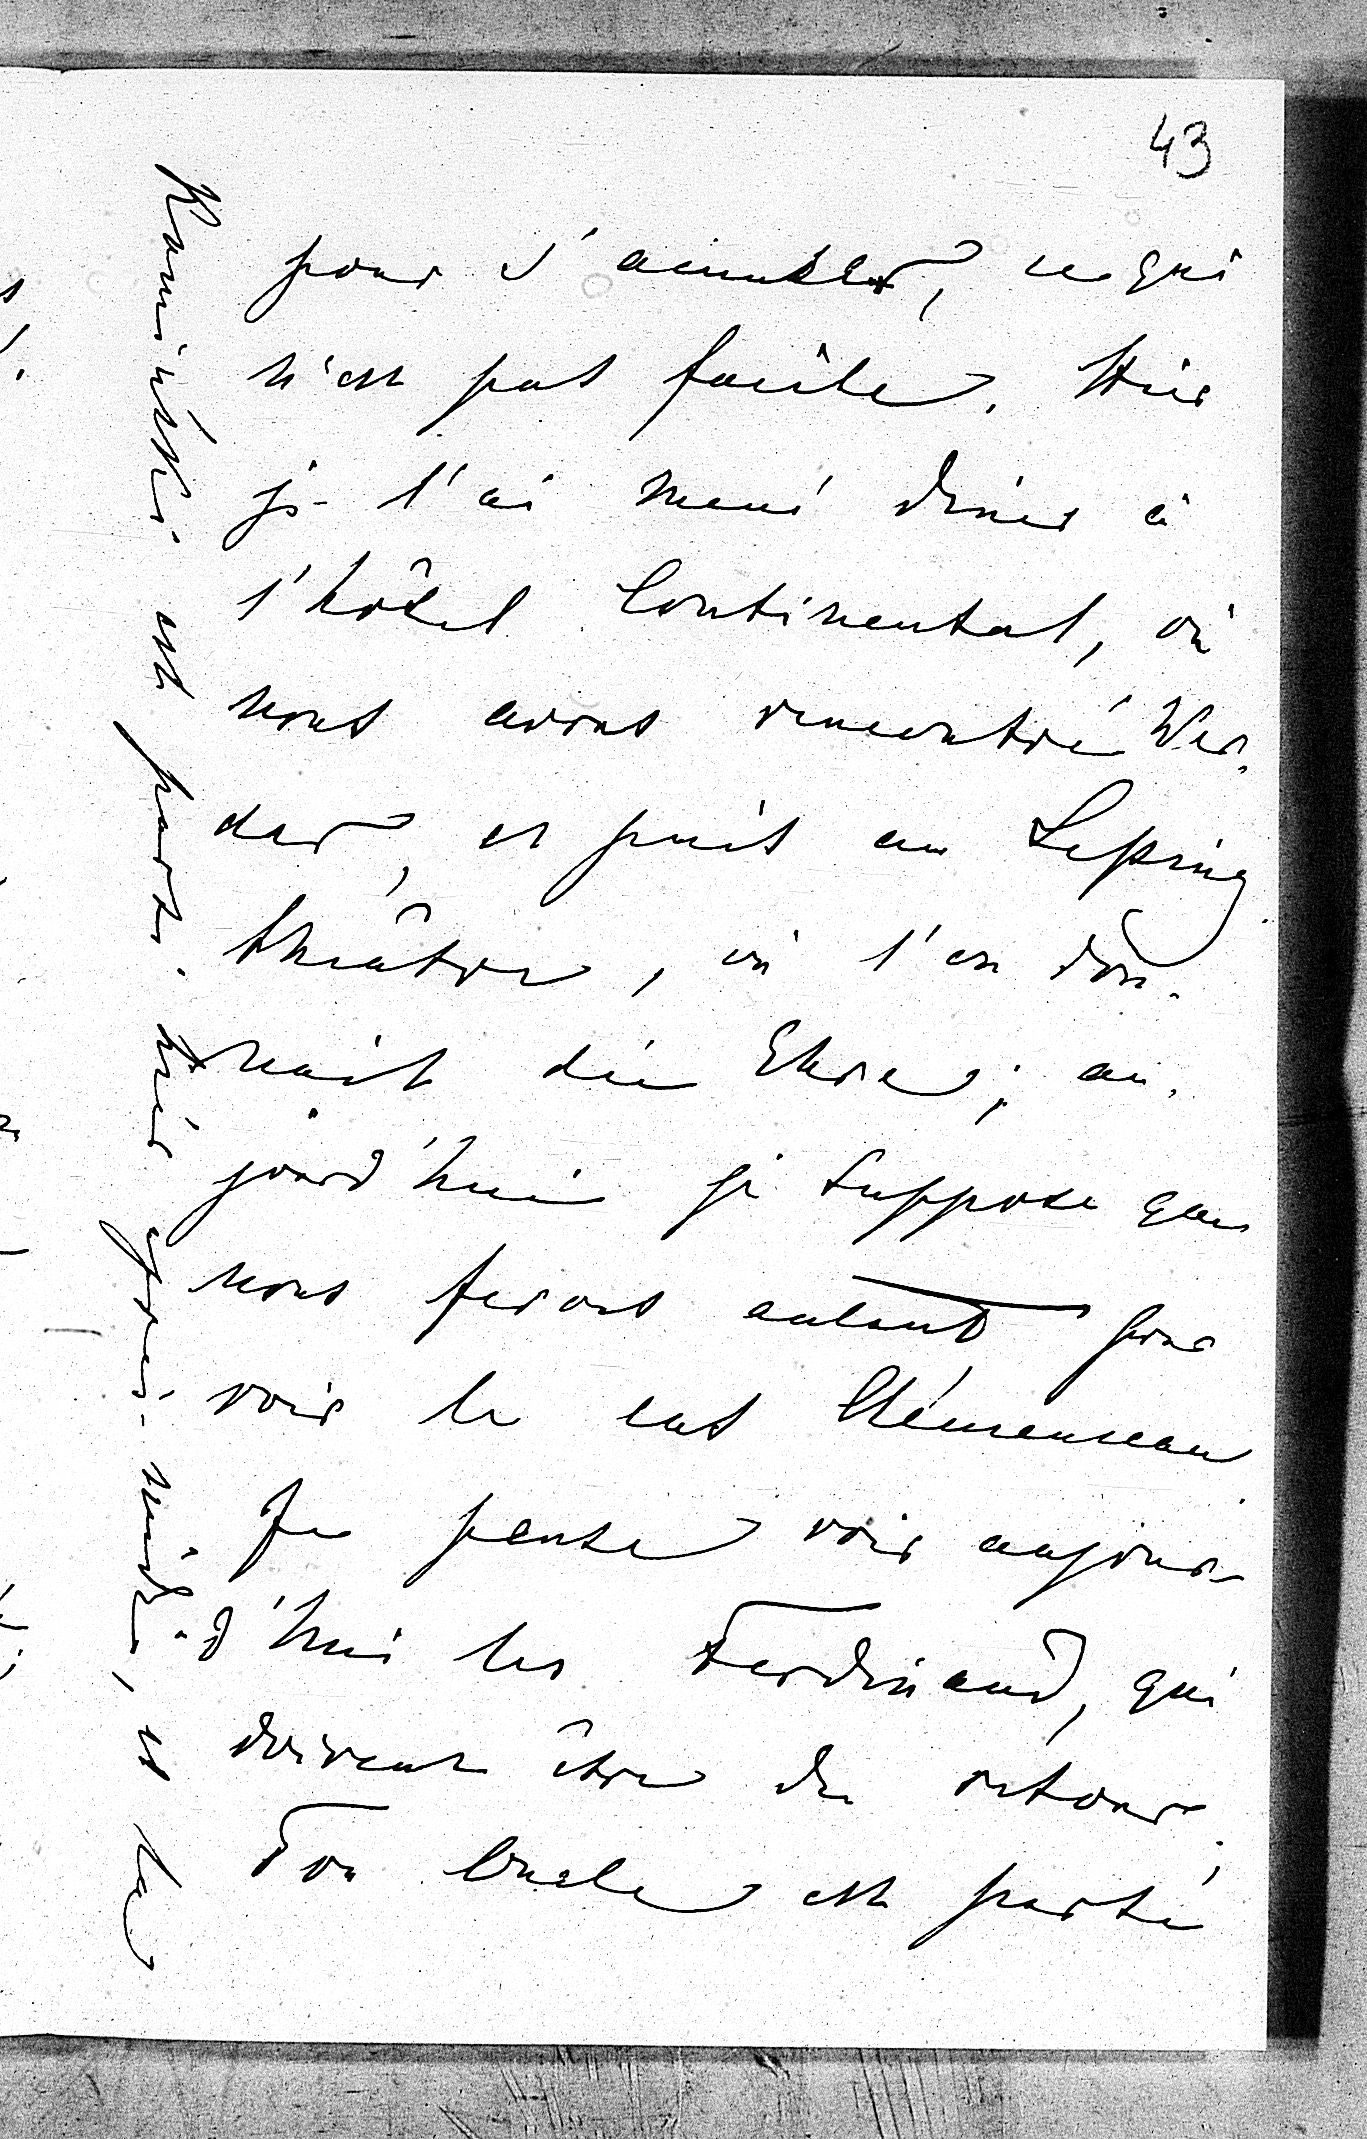 43
pour s'amuser, ce qui
n'est pas facile. Hier
je l'ai mené dîner à
l'hôtel Continental, où
nous avons rencontré Wer-
der, et puis au Lessing
théâtre, où l'on don-
nait die Ehre; au-
jourd'hui je suppose que
nous ferons autant pour
voir le cas Clémenceau
Je pense voir aujour-
d'hui les Ferdinand, qui
doivent être de retour;
Ton oncle est parti
Kaminski est parti hier après-midi, et